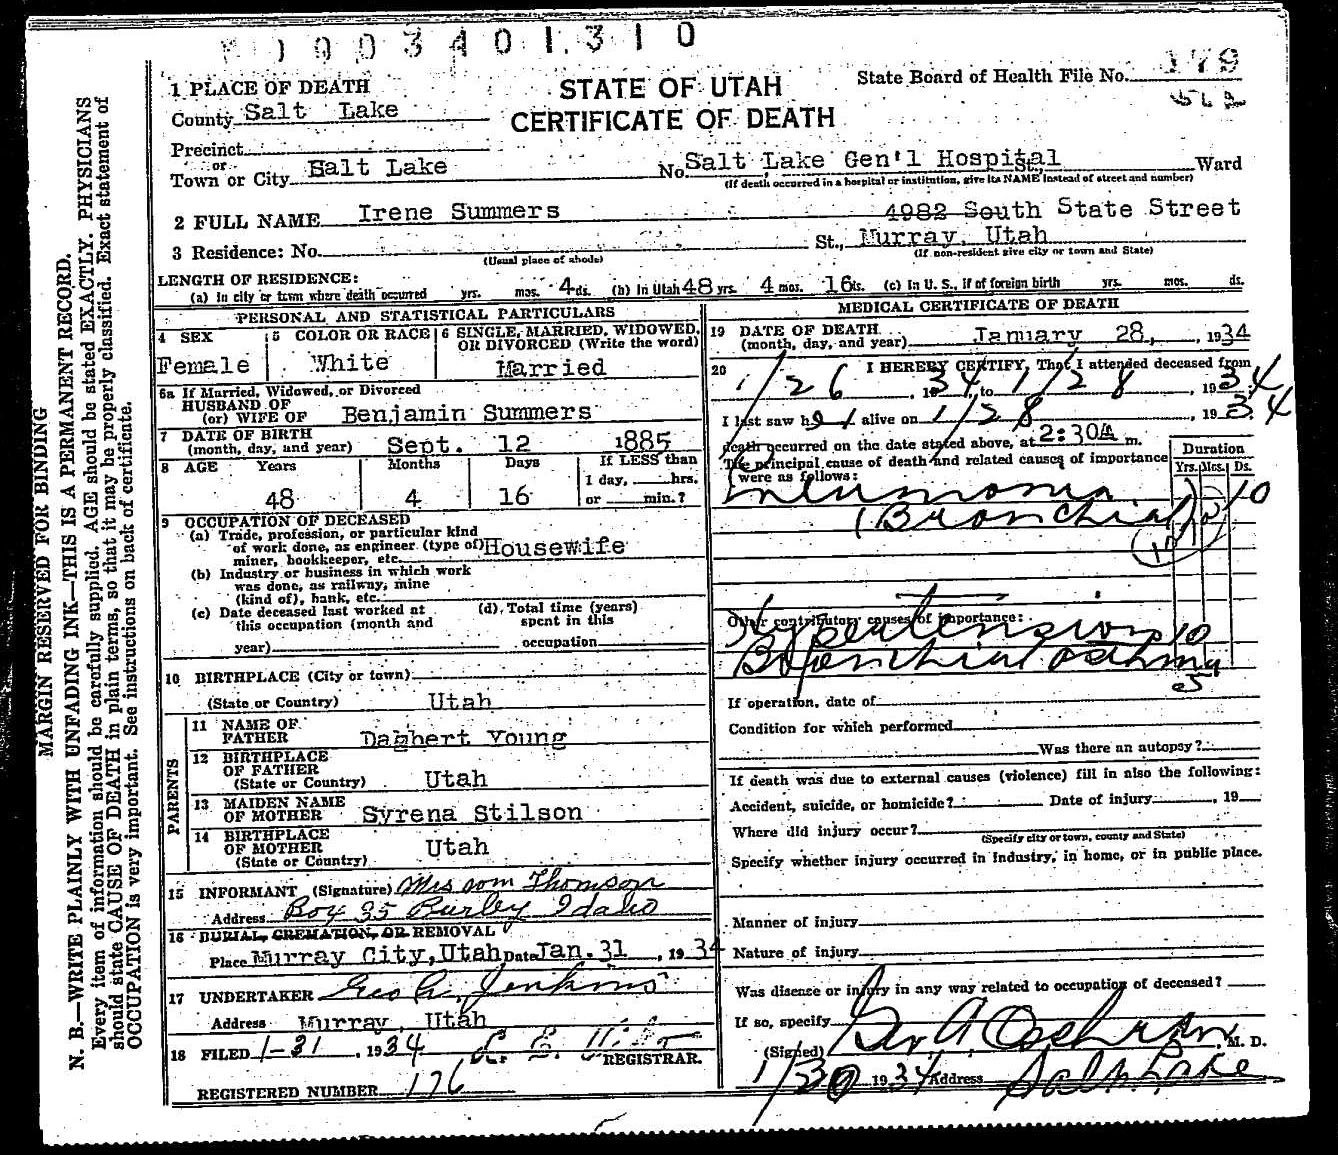 1003401310
1 PLACE OF DEATH
STATE OF UTAH
State Board of Health File No. 179
County Salt Lake
CERTIFICATE OF DEATH
562
Precinct
or
Town or City Salt Lake No. Salt Lake Gen'l Hospital St., Ward
(If death occurred in a hospital or institution, give its NAME instead of street and number)
2 FULL NAME Irene Summers 4982 South State Street
3 Residence: No. St., Murray, Utah
(Usual place of abode) (If non-resident give city or town and State)
LENGTH OF RESIDENCE:
(a) In city or town where death occurred yrs. mos. 4 ds. (b) In Utah 48 yrs. 4 mos. 16 ds. (c) In U. S., if of foreign birth yrs. mos. ds.
PERSONAL AND STATISTICAL PARTICULARS
4 SEX 5 COLOR OR RACE 6 SINGLE, MARRIED, WIDOWED, OR DIVORCED (Write the word)
Female White Married
6a If Married, Widowed, or Divorced
HUSBAND OF
(or) WIFE OF Benjamin Summers
7 DATE OF BIRTH
(month, day, and year) Sept. 12 1885
8 AGE Years Months Days If LESS than
1 day, hrs.
48 4 16 or min.?
9 OCCUPATION OF DECEASED
(a) Trade, profession, or particular kind
of work done, as engineer (type of) Housewife
miner, bookkeeper, etc.
(b) Industry or business in which work
was done, as railway, mine
(kind of), bank, etc.
(c) Date deceased last worked at (d). Total time (years)
this occupation (month and spent in this
year) occupation
10 BIRTHPLACE (City or town)
(State or Country) Utah
PARENTS
11 NAME OF
FATHER Dalbert Young
12 BIRTHPLACE
OF FATHER
(State or Country) Utah
13 MAIDEN NAME
OF MOTHER Syrena Stilson
14 BIRTHPLACE
OF MOTHER Utah
(State or Country)
15 INFORMANT (Signature) Mrs Tom Thomson
Address Box 35 Burley Idaho
16 BURIAL, CREMATION, OR REMOVAL
Place Murray City, Utah Date Jan. 31, 1934
17 UNDERTAKER Geo A. Jenkins
Address Murray, Utah
18 FILED 1-31, 1934
REGISTRAR.
REGISTERED NUMBER 176
MEDICAL CERTIFICATE OF DEATH
19 DATE OF DEATH
(month, day, and year) January 28, 1934
20 I HEREBY CERTIFY, That I attended deceased from
1/26, 1934, to 1/28, 1934
I last saw her alive on 1/28, 1934
death occurred on the date stated above, at 2:30A m.
The principal cause of death and related causes of importance
were as follows:
Duration
Yrs. Mos. Ds.
Pneumonia 10
(Bronchial)
Other contributory causes of importance:
Hypertension 10
Bronchial asthma
5
If operation, date of
Condition for which performed
Was there an autopsy?
If death was due to external causes (violence) fill in also the following:
Accident, suicide, or homicide? Date of injury, 19
Where did injury occur?
(Specify city or town, county and State)
Specify whether injury occurred in industry, in home, or in public place.
Manner of injury
Nature of injury
Was disease or injury in any way related to occupation of deceased?
If so, specify
(Signed) Geo. A. Cochran, M. D.
1/30 1934 Address Salt Lake
MARGIN RESERVED FOR BINDING
N. B.—WRITE PLAINLY WITH UNFADING INK—THIS IS A PERMANENT RECORD.
Every item of information should be carefully supplied. AGE should be stated EXACTLY. PHYSICIANS
should state CAUSE OF DEATH in plain terms, so that it may be properly classified. Exact statement of
OCCUPATION is very important. See instructions on back of certificate.